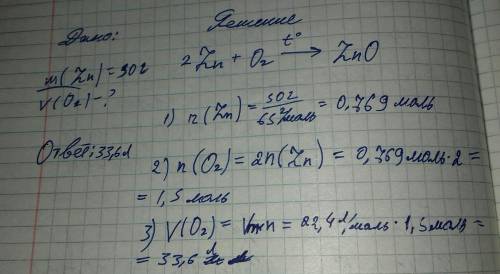 Дано:
Решение
m(Zn)=50г
V(O₂)-?
2Zn + O₂ t° → ZnO
1) n(Zn) = 50г / 65г/моль = 0,769 моль
Ответ: 33,6л
2) n(O₂) = 2n(Zn) = 0,769 моль·2 =
= 1,5 моль
3) V(O₂) = Vm·n = 22,4 л/моль · 1,5 моль =
= 33,6 л